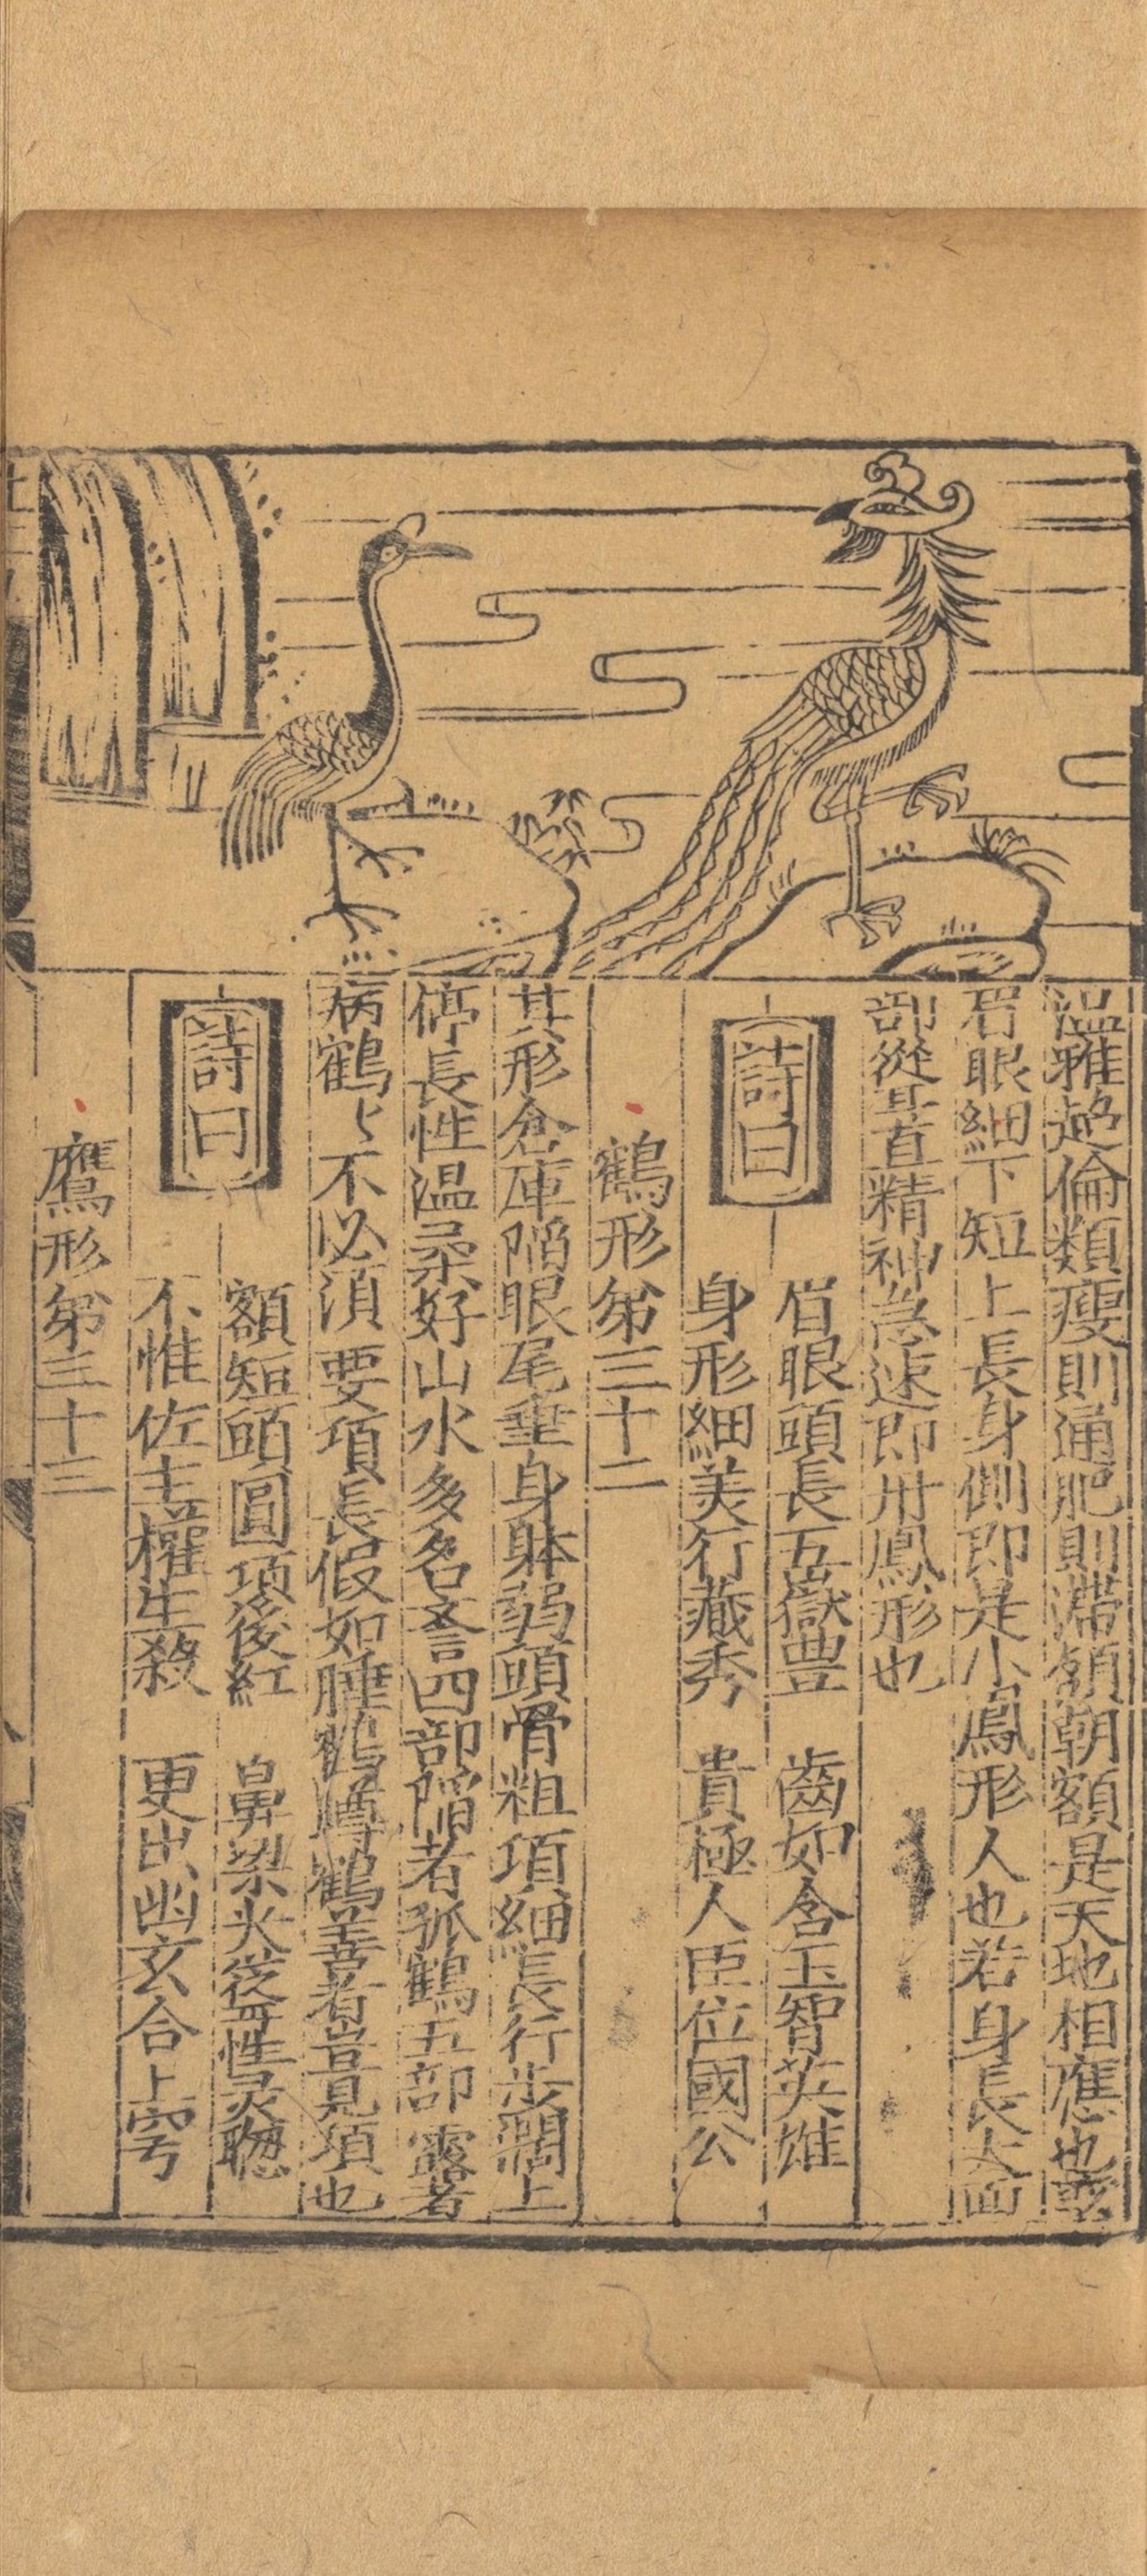 溫雅超倫類瘦則通肥則滯頷朝額是天地相應也
眉眼細下短上長身側即是小鳳形人也若身長大面
部從耳直精神急速即丹鳳形也
詩曰
眉眼頭長五嶽豊 齒如含玉智英雄
身形細美行藏秀 貴極人臣位國公
鶴形第三十二
其形倉庫陷眼尾垂身躰弱頭骨粗項細長行步濶上
停長性溫柔好山水多名誉四部陷者孤鶴五部露者
病鶴〻不必須要項長假如睡鶴蹲鶴善者豈見項也
詩曰
額短頭圓項後紅 鼻梁尖
性灵聰
不惟佐主權生殺 更出幽玄合上穹
鷹形第三十三